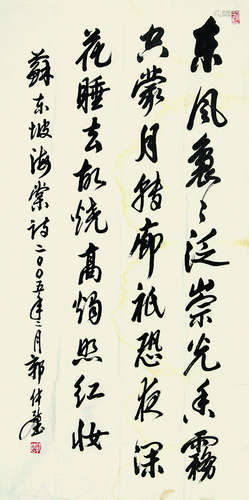 东风裊々泛崇光香霧
空蒙月转廊祇恐夜深
花睡去故烧高燭照红妆
蘇东坡海棠诗二〇〇五年二月郭